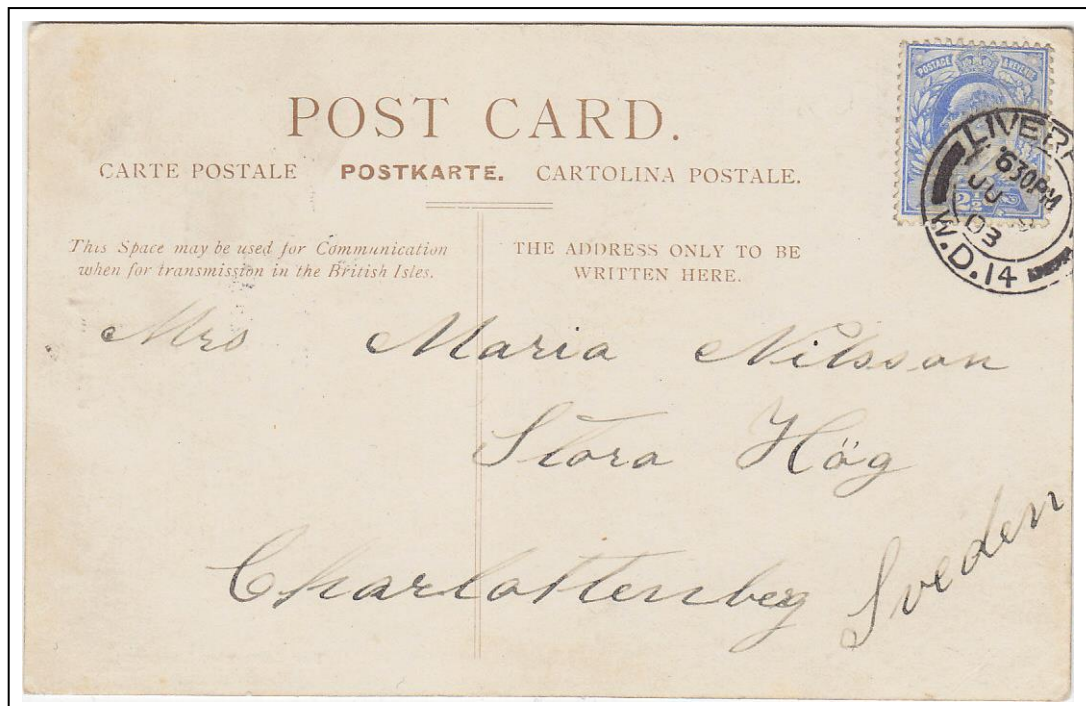 POST CARD.
CARTE POSTALE POSTKARTE. CARTOLINA POSTALE.
This Space may be used for Communication
when for transmission in the British Isles.
THE ADDRESS ONLY TO BE
WRITTEN HERE.
POSTAGE & REVENUE
LIVERP
630PM
JU
03
W.D.14
2½
Mrs Maria Nilsson
Stora Hög
Charlottenberg
Sveden